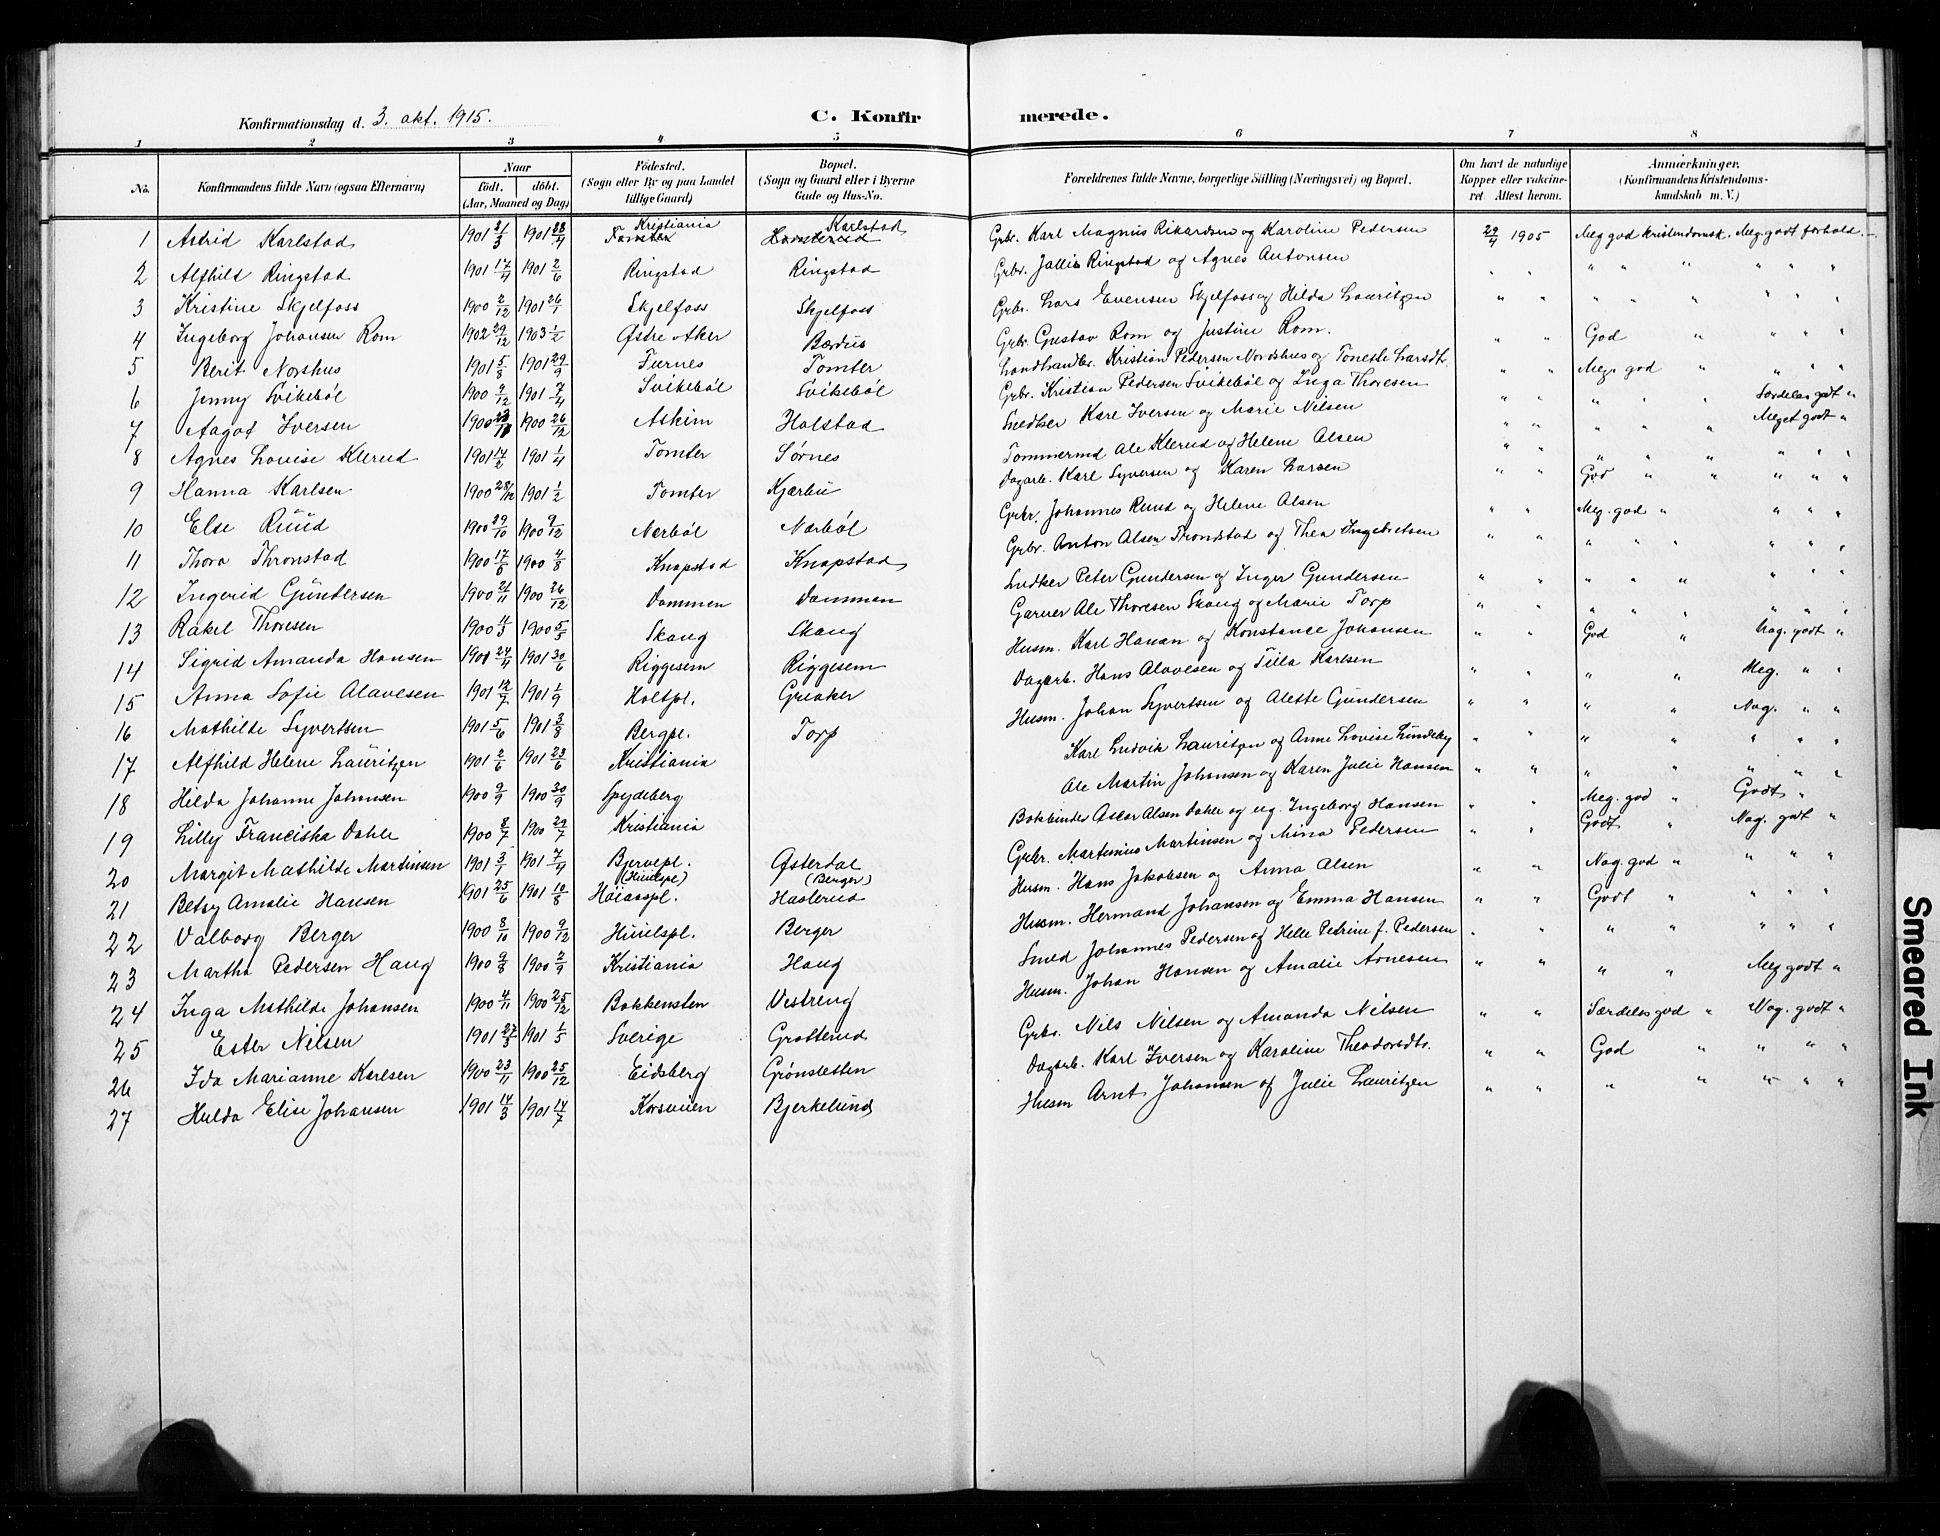 Konfirmationsdag d. 3. okt. 1915.
C. Konfirmerede.
1 2 3 4 5 6 7 8
No. Konfirmandens fulde Navn (ogsaa Efternavn) Naar født, døbt. (Aar, Maaned og Dag) Fødested. (Sogn eller By og paa Landet tillige Gaard) Bopæl. (Sogn og Gaard eller i Byerne Gade og Hus-No. Forældrenes fulde Navne, borgerlige Stilling (Næringsvei) og Bopæl. Om havt de naturlige Kopper eller vaccineret. Attest herom. Anmærkninger. (Konfirmandens Kristendomskundskab m. V.)
1 Astrid Karlstad 1901 1901 28/4 Tomter Kristiania Karlstad Grbr. Karl Magnus Rikardsen og Karoline Pedersen 29/4 1905 Meg. god kristendomsk. Meg. godt forhold.
2 Alfhild Ringstad 1901 17/4 1901 2/6 Ringstad Ringstad Grbr. Ringstad og Agnes Antonsen " " " " " " " "
3 Kristine Skjelfoss 1900 2/12 1901 26/1 Skjelfoss Skjelfoss Grbr. Lars Evensen Skjelfoss og Hilda Lauritzen " " " " " " " "
4 Ingeborg Johansen Rom 1902 29/12 1903 1/2 Østre Aker Bærdus Grbr. Gustav Rom og Justine Rom. " " God " " " "
5 Berit Norshus 1901 5/8 1901 29/9 Furnes Tomter Landhandler. Kristian Pedersen Nordshus og Tonette Larsdt. " " Meg. god " " " "
6 Jenny Svikebøl 1900 9/12 1901 7/4 Svikebøl Svikebøl Grbr. Kristian Pedersen Svikebøl og Inga Thoresen " " " " " Særdeles godt "
7 Aagot Iversen 1900 1900 26/12 Askim Holstad Snedker Karl Iversen og Marie Nilsen " " " " " Meget godt "
8 Agnes Lovise Klerud 1901 17/2 1901 1/4 Tomter Sørnes Tømmermd Ole Klerud og Helene Olsen " " " " " " " "
9 Hanna Karlsen 1900 28/12 1901 1/2 Tomter Kjærbu Dagarb. Karl Syversen og Karen Larsen " " God " " " " "
10 Else Ruud 1900 29/10 1900 9/12 Nærbøl Nærbøl Grbr. Johannes Ruud og Helene Olsen " " Meg. god " " " "
11 Thora Thronstad 1900 17/6 1900 4/8 Knapstad Knapstad Grbr. Anton Olsen Trondstad og Thea Ingebretsen " " " " " " " "
12 Ingerid Gundersen 1900 21/11 1900 26/12 Dammen Dammen Snedker Peter Gundersen og Inger Gundersen " " " " " " " "
13 Rakel Thoresen 1900 4/3 1900 5/5 Skaug Skaug Garver Ole Thoresen Skaug og Marie Torp " " " " " " " "
14 Sigrid Amanda Hansen 1901 24/4 1901 30/6 Riggesem Riggesem Husm. Karl Hansen og Konstance Johansen " " God " Nog. godt "
15 Anna Sofie Olavesen 1901 12/7 1901 1/9 Holtpl. Greaker Dagarb. Hans Olavesen og Tilla Karlsen " " " " Meg. " "
16 Mathilde Syvertsen 1901 5/6 1901 3/8 Bergpl. Torp Husm. Johan Syvertsen og Alette Gundersen " " " " Nog. " "
17 Alfhild Helene Lauritzen 1901 2/6 1901 23/6 Kristiania Karl Ludvik Lauritzen og Anne Lovise Lundeby " " " " " " "
18 Hilda Johanne Johansen 1900 9/9 1900 30/9 Spydeberg Ole Martin Johansen og Karen Julie Hansen " " " " " " "
19 Lilly Franciska Dahle 1900 8/7 1900 29/7 Kristiania Bokbinder Oscar Olsen Dahle og ug. Ingeborg Hansen " " Meg. god " Godt "
20 Margit Mathilde Martinsen 1901 3/1 1901 7/4 Bjervepl. Østerdal Grbr. Martinius Martinsen og Mina Pedersen " " Godt " Nog. godt "
21 Betsy Amalie Hansen 1901 25/6 1901 10/8 (Huielspl) Høiaaspl. (Berger) Haslerud Husm. Hans Jakobsen og Anna Olsen " " Nog. god " " " "
22 Valborg Berger 1900 8/10 1900 9/12 Huielspl. Berger Husm. Hermand Johansen og Emma Hansen " " Godt " " " "
23 Martha Pedersen Haug 1900 9/8 1900 2/9 Kristiania Haug Smed Johannes Pedersen og Helle Petrine f. Pedersen " " " " " " "
24 Inga Mathilde Johansen 1900 4/11 1900 25/12 Bakkensten Vestreng Husm. Johan Hansen og Amalie Arnesen " " " " Meg godt "
25 Ester Nilsen 1901 27/3 1901 1/5 Sverige Gratterud Grbr. Nils Nilsen og Amanda Nilsen " " Særdeles god " Nog. godt "
26 Ida Marianne Karlsen 1900 23/11 1900 25/12 Eidsberg Grønsletten Dagarb. Karl Iversen og Karoline Theodorsdtr. " " God " " " "
27 Hulda Elise Johansen 1901 14/3 1901 14/7 Korsveien Bjerkelund Husm Arnt Johansen og Julie Lauritzen " " " " " " "
Smeared Ink